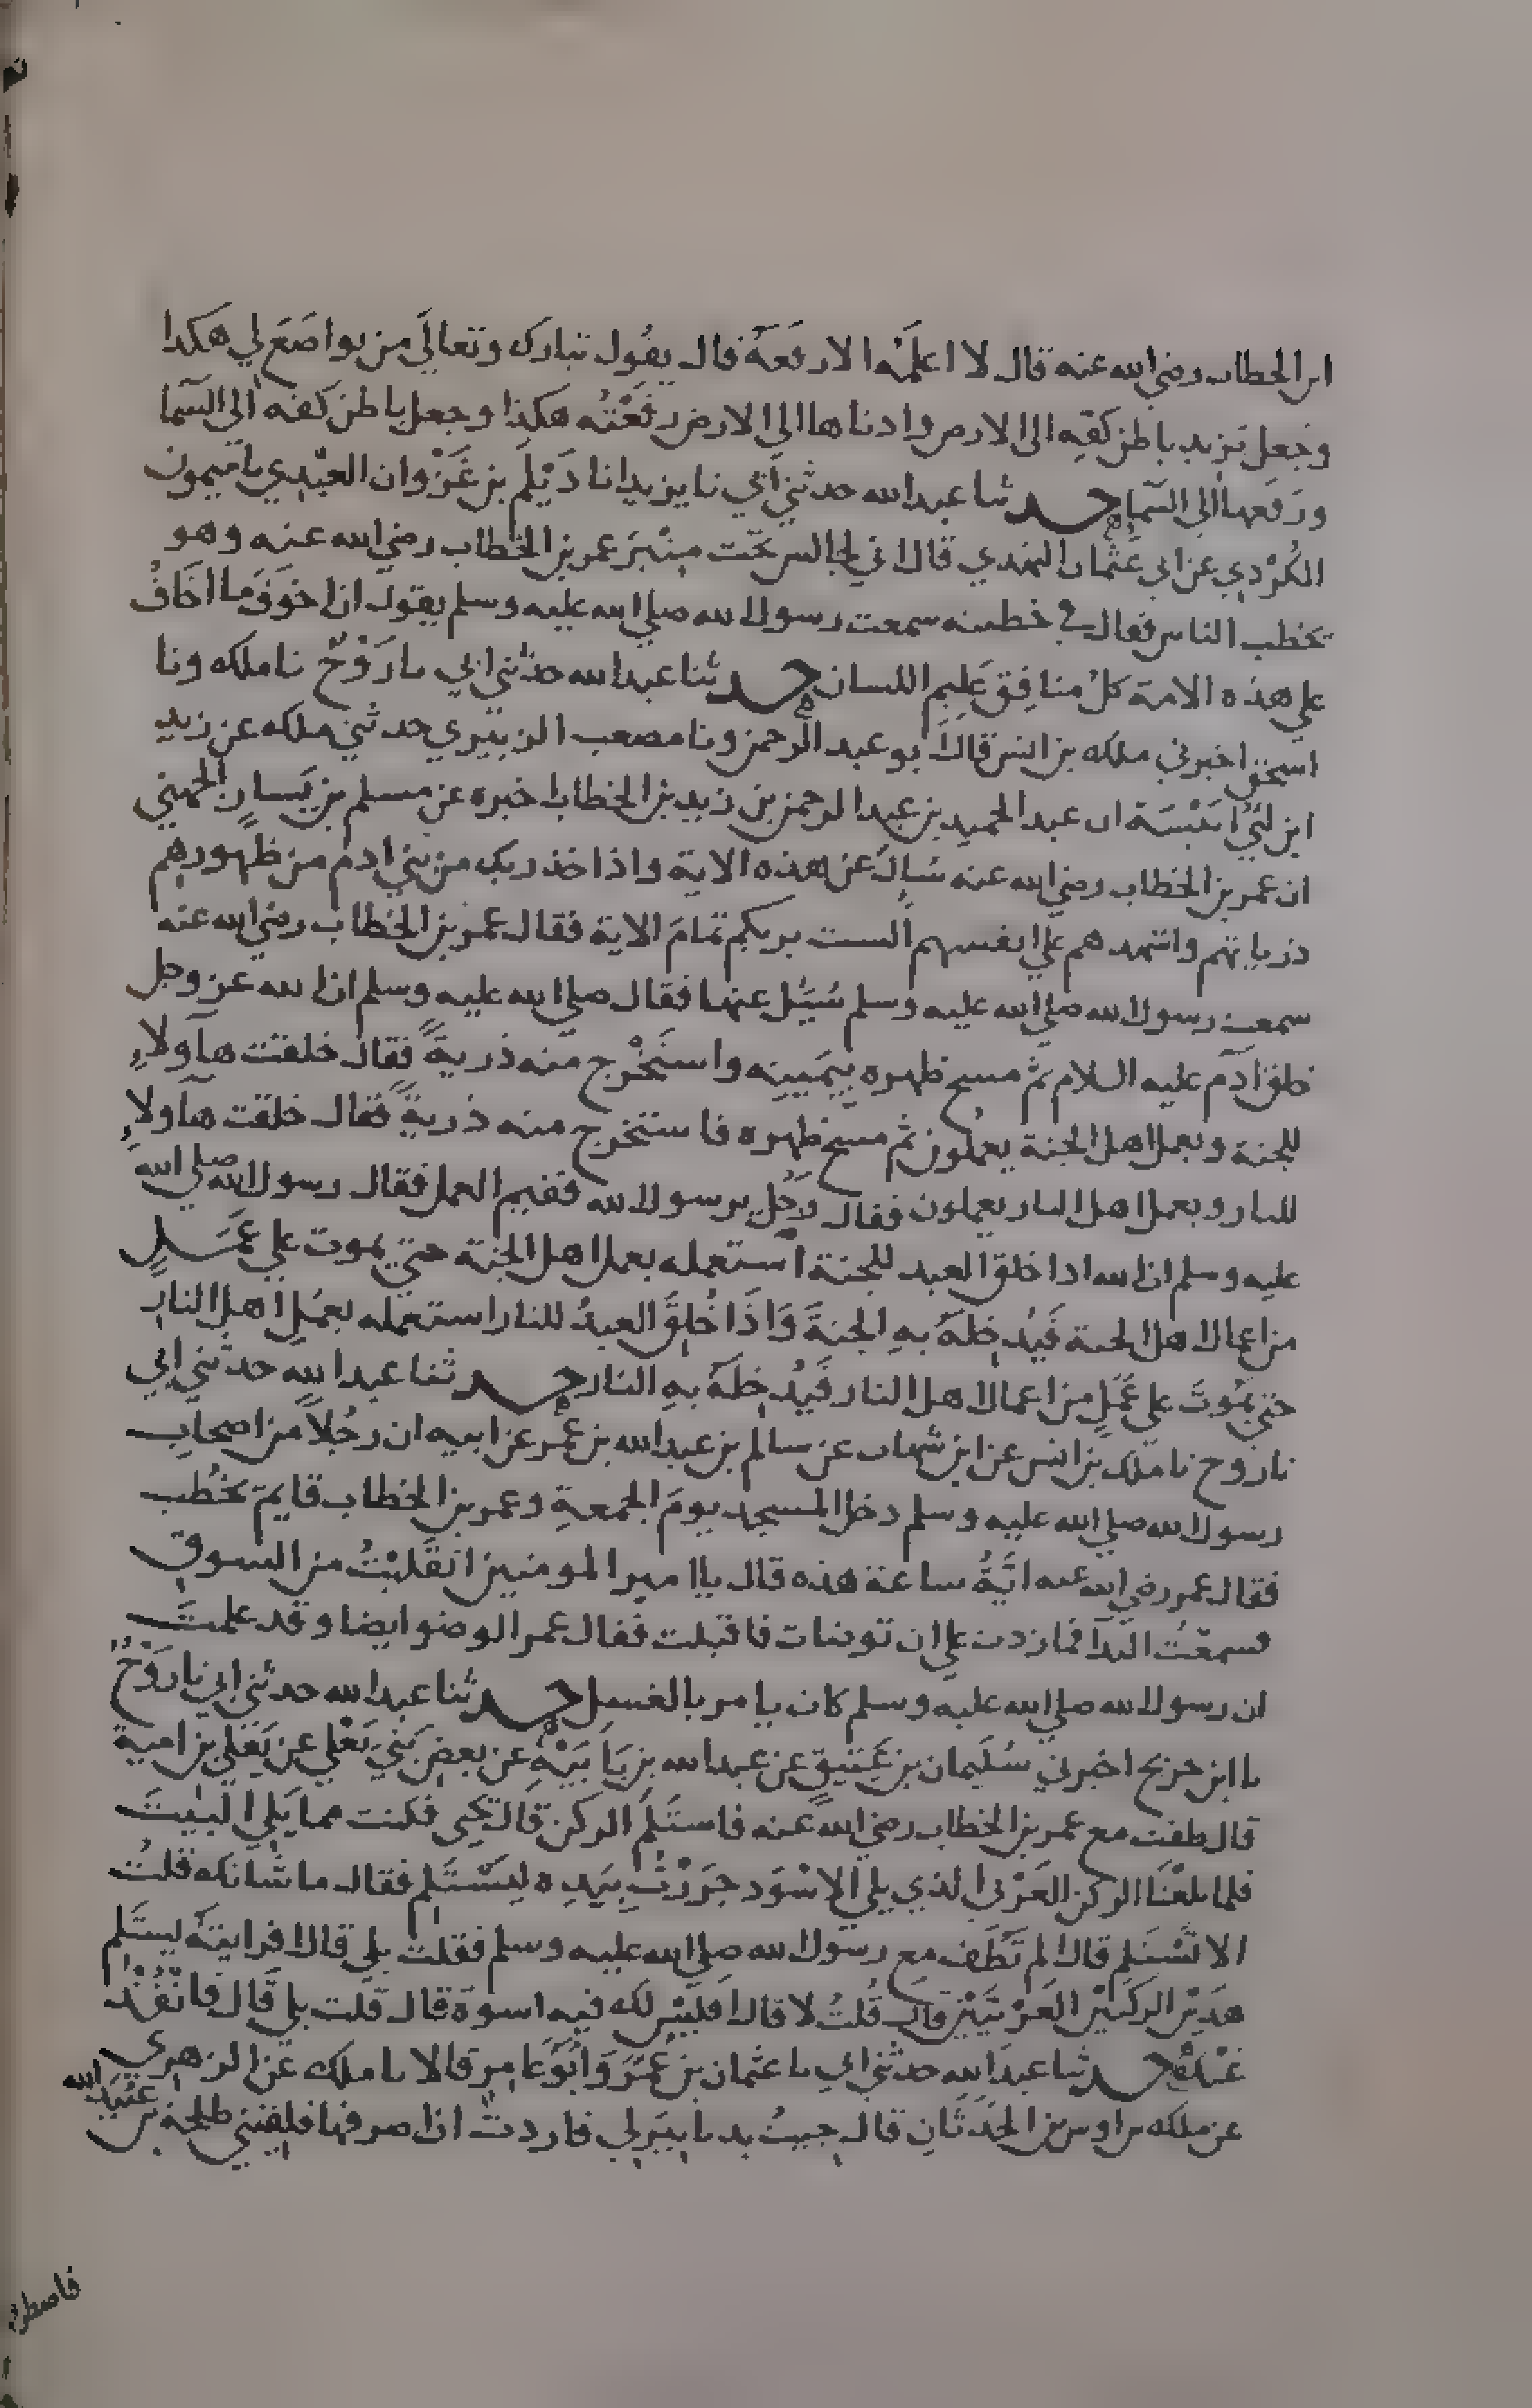 ابن الخطاب رضي الله عنه قال لا اعلمه الا رفعه قال يقول تبارك وتعالى من تواضع لي هكذا
وجعل يزيد باطن كفه الى الارض وادناها الى الارض رفعته هكذا وجعل باطن كفه الى السما
ورفعها الى السما حدثنا عبد الله حدثني ابي نا يزيد انا ديلم بن غزوان العبدي نا ميمون
الكردي عن ابي عثمان النهدي قال اني لجالس تحت منبر عمر بن الخطاب رضي الله عنه وهو
يخطب الناس فقال في خطبته سمعت رسول الله صلى الله عليه وسلم يقول ان اخوف ما اخاف
على هذه الامة كل منافق عليم اللسان حدثنا عبد الله حدثني ابي نا روح نا ملك ونا
اسحق اخبرني ملك بن انس قال ابو عبد الرحمن ونا مصعب الزبيري حدثني ملك عن زيد
ابن ابي انيسة ان عبد الحميد بن عبد الرحمن بن زيد بن الخطاب اخبره عن مسلم بن يسار الجهني
ان عمر بن الخطاب رضي الله عنه سئل عن هذه الاية واذ اخذ ربك من بني ادم من ظهورهم
ذرياتهم واشهدهم على انفسهم الست بربكم تمام الاية فقال عمر بن الخطاب رضي الله عنه
سمعت رسول الله صلى الله عليه وسلم سئل عنها فقال صلى الله عليه وسلم ان الله عز وجل
خلق آدم عليه السلام ثم مسح ظهره بيمينه واستخرج منه ذرية فقال خلقت هآولاء
للجنة وبعمل اهل الجنة يعملون ثم مسح ظهره فاستخرج منه ذرية فقال خلقت هآولاء
للنار وبعمل اهل النار يعملون فقال رجل يرسول الله ففيم العمل فقال رسول الله صلى الله
عليه وسلم ان الله اذا خلق العبد للجنة استعمله بعمل اهل الجنة حتى يموت على عمل
من اعمال اهل الجنة فيدخله به الجنة واذا خلق العبد للنار استعمله بعمل اهل النار
حتى يموت على عمل من اعمال اهل النار فيدخله به النار حدثنا عبد الله حدثني ابي
نا روح نا ملك بن انس عن ابن شهاب عن سالم بن عبد الله بن عمر عن ابيه ان رجلا من اصحاب
رسول الله صلى الله عليه وسلم دخل المسجد يوم الجمعة وعمر بن الخطاب قايم يخطب
فقال عمر رضي الله عنه اية ساعة هذه قال يا امير المومنين انقلبت من السوق
فسمعت الندآ فما زدت على ان توضات فاقبلت فقال عمر الوضو ايضا وقد علمت
ان رسول الله صلى الله عليه وسلم كان يامر بالغسل حدثنا عبد الله حدثني ابي نا روح
نا ابن جريج اخبرني سليمان بن عتيق عن عبد الله بن بابيه عن بعض بني يعلى عن يعلى بن امية
قال طفت مع عمر بن الخطاب رضي الله عنه فاستلم الركن قال يحيى فكنت مما يلي البيت
فلما بلغنا الركن الغربي الذي يلي الاسود جررت بيده ليستلم فقال ما شانك قلت
الا تستلم قال الم تطف مع رسول الله صلى الله عليه وسلم فقلت بلى قال افرايته يستلم
هذين الركنين الغربيين قال قلت لا قال افليس لك فيه اسوة قال قلت بلى قال فانفذ
عنك حدثنا عبد الله حدثني ابي نا عثمان بن عمر وابو عامر قالا نا ملك عن الزهري
عن ملك بن اوس بن الحدثان قال جيت بدنانير لي فاردت ان اصرفها فلقيني طلحة بن عبيد الله
فاصطر